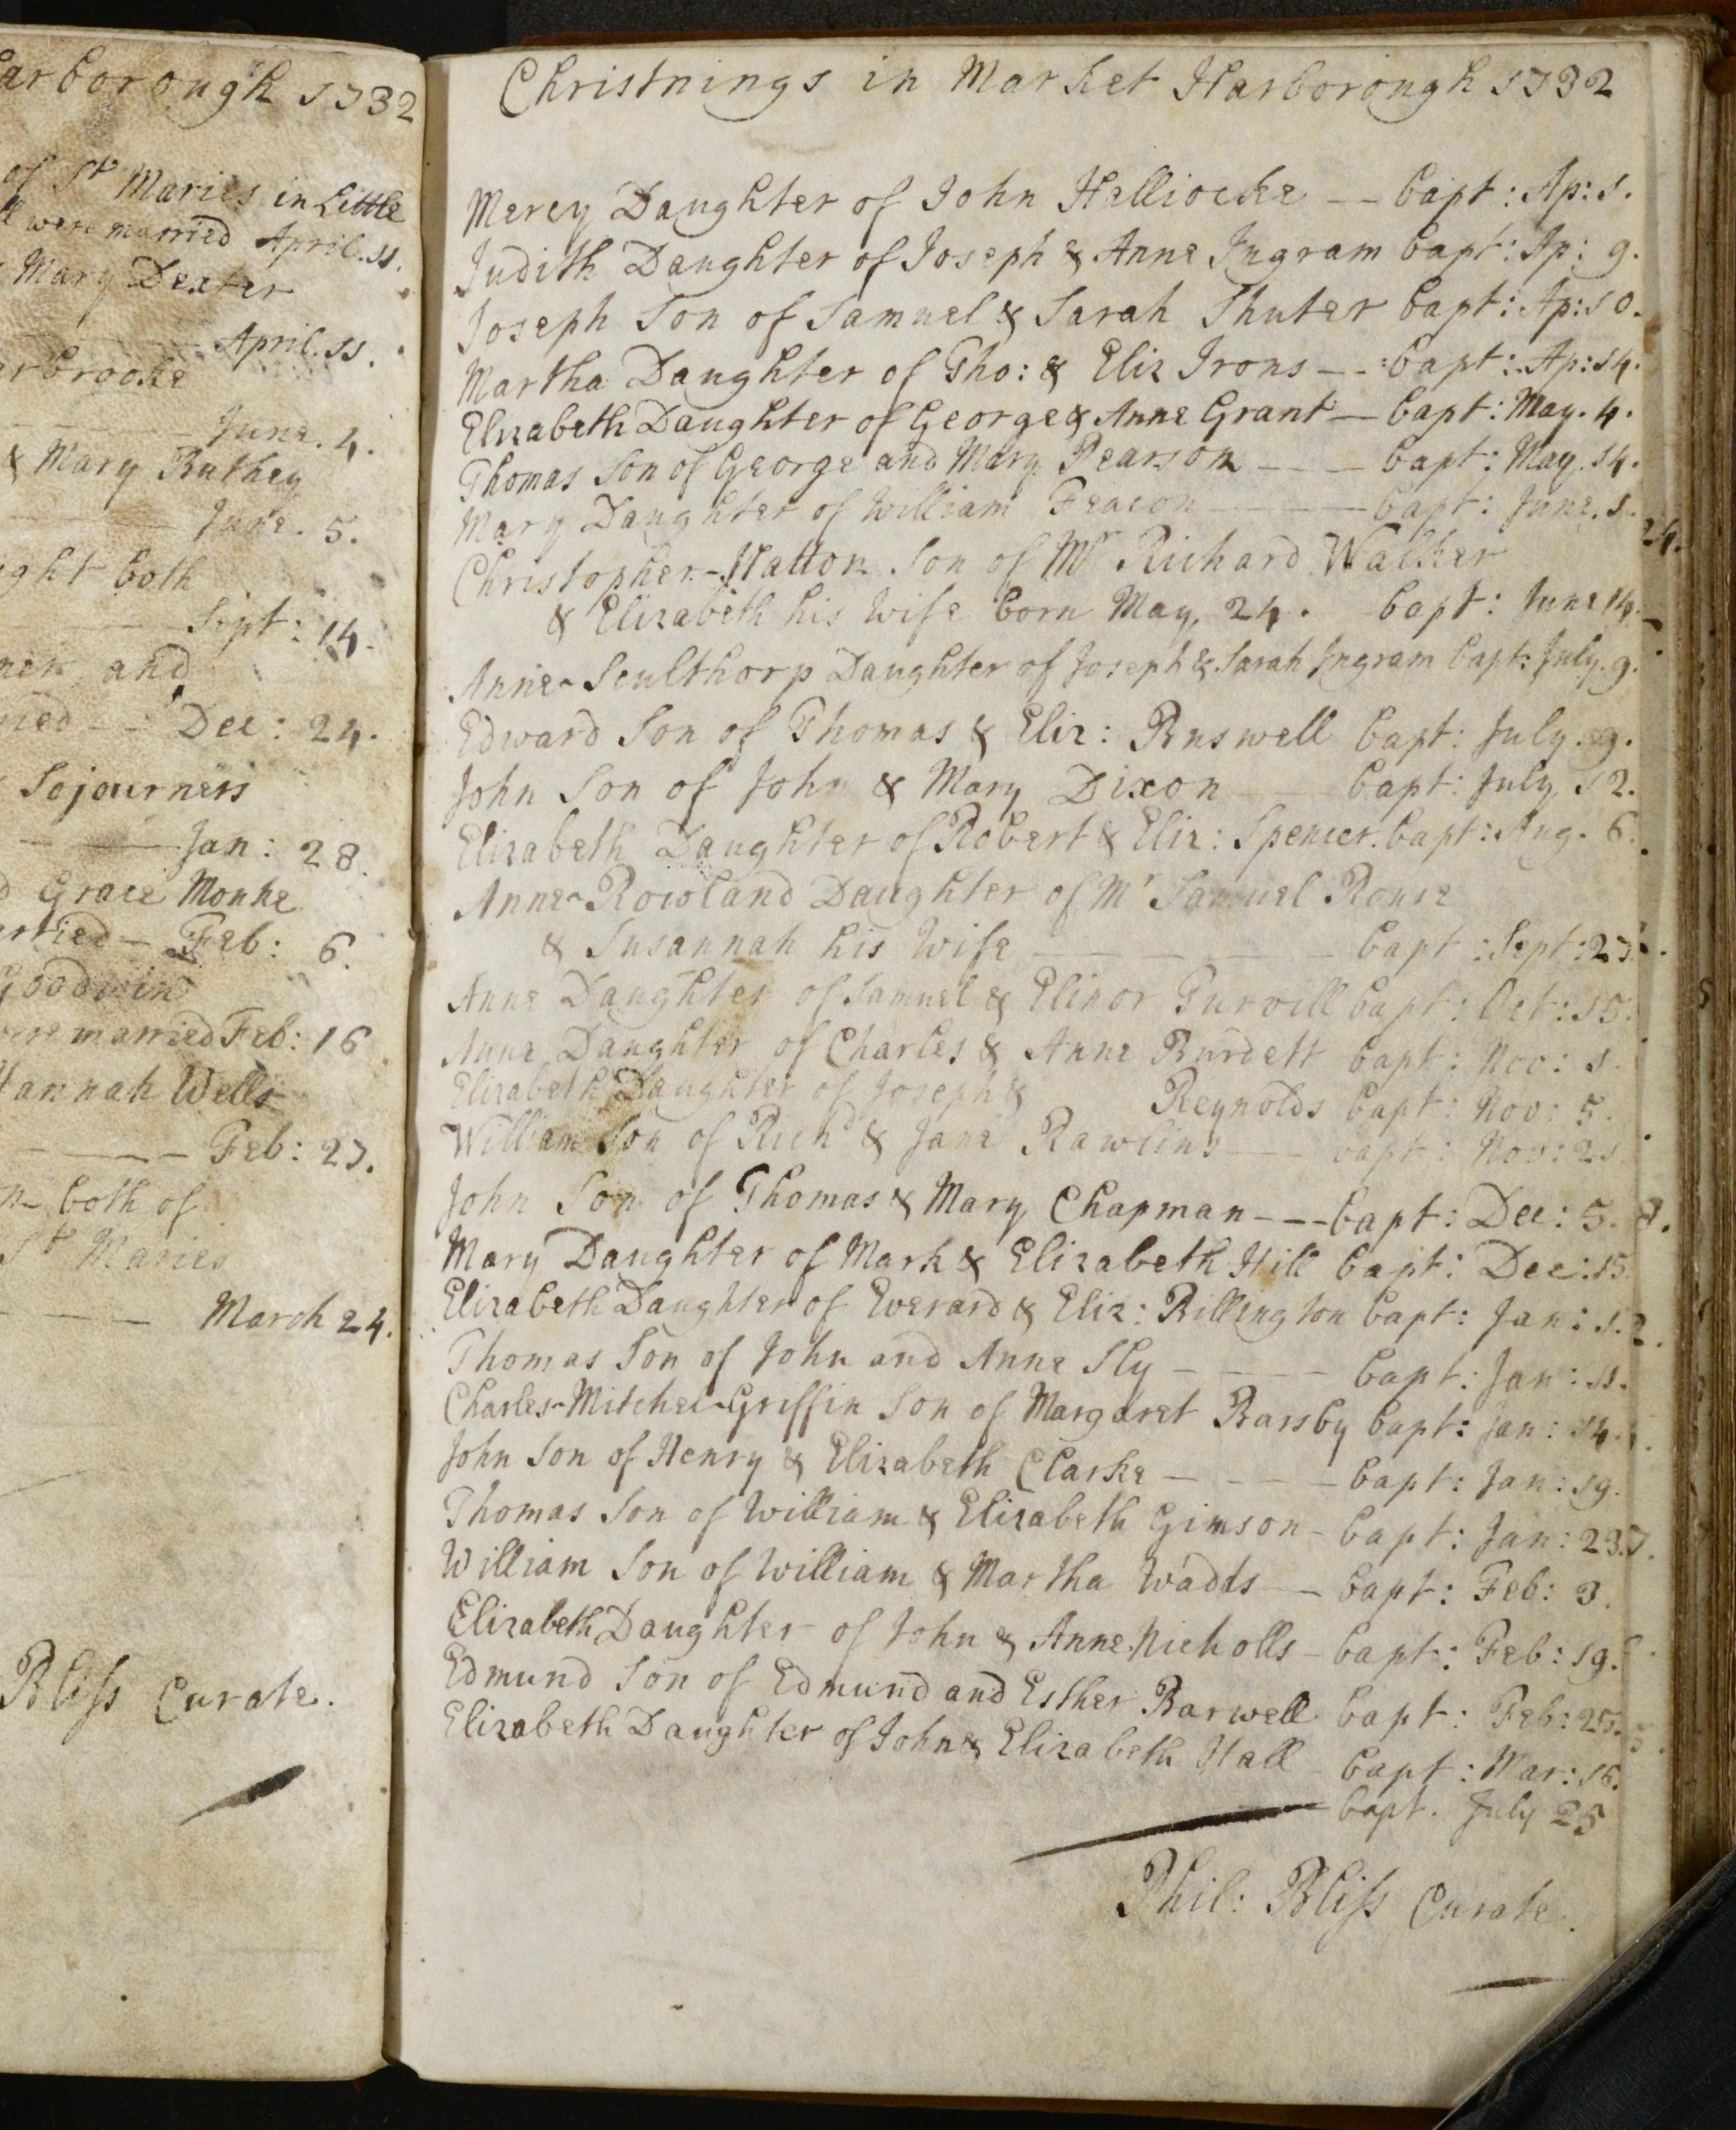 arborough 1732
of St Maries in Little
were married April. 11.
Mary Dexter
April. 11.
arbrooke
June. 4.
& Mary Buthey
June. 5.
ight both
Sept: 14.
and
ried -- Dec: 24.
Sojourners
Jan: 28.
Grace Monke
rried - Feb: 6.
Goodwin
were married Feb: 16
Hannah Wells
Feb: 27.
both of
St Maries
March 24.
Bliss Curate.
Christnings in Market Harborough 1732
Mercy Daughter of John Halliocke -- bapt: Ap: 1.
Judith Daughter of Joseph & Anne Ingram bapt: Ap: 9.
Joseph Son of Samuel & Sarah Shuter bapt: Ap: 10.
Martha Daughter of Tho: & Eliz Irons -- bapt: Ap: 14.
Elizabeth Daughter of George & Anne Grant - bapt: May. 4.
Thomas Son of George and Mary Pearson --- bapt: May. 14.
Mary Daughter of William Feacon --- bapt: June. 1.
Christopher-Hatton Son of Mr Richard Walker
& Elizabeth his Wife born May, 24. bapt: June 14.
Anne-Sculthorp Daughter of Joseph & Sarah Ingram bapt: July. 9.
Edward Son of Thomas & Eliz: Buswell bapt: July. 9.
John Son of John & Mary Dixon -- bapt: July 12.
Elizabeth Daughter of Robert & Eliz: Spencer. bapt: Aug. 6.
Anne-Rowland Daughter of Mr Samuel Rouse
& Susannah his Wife ----- bapt: Sept: 27.
Anne Daughter of Samuel & Elinor Turvill bapt: Oct: 15.
Anne Daughter of Charles & Anne Burdett bapt: Nov: 1.
Elizabeth Daughter of Joseph & Reynolds bapt: Nov: 5.
William Son of Richd & Jane Rawlins --- bapt: Nov: 21
John Son of Thomas & Mary Chapman --- bapt: Dec: 5.
Mary Daughter of Mark & Elizabeth Hill bapt: Dec: 15
Elizabeth Daughter of Everard & Eliz: Billington bapt: Jan: 1.
Thomas Son of John and Anne Sly ---- bapt: Jan: 11.
Charles-Mitchel-Griffin Son of Margaret Barsby bapt: Jan: 14.
John Son of Henry & Elizabeth Clarke ---- bapt: Jan: 19.
Thomas Son of William & Elizabeth Gimson - bapt: Jan: 23.
William Son of William & Martha Wadds -- bapt: Feb: 3.
Elizabeth Daughter of John & Anne Nicholls - bapt: Feb: 19.
Edmund Son of Edmund and Esther Barwell bapt: Feb: 25.
Elizabeth Daughter of John & Elizabeth Hall - bapt: Mar: 16.
bapt. July 25
Phil: Bliss Curate.